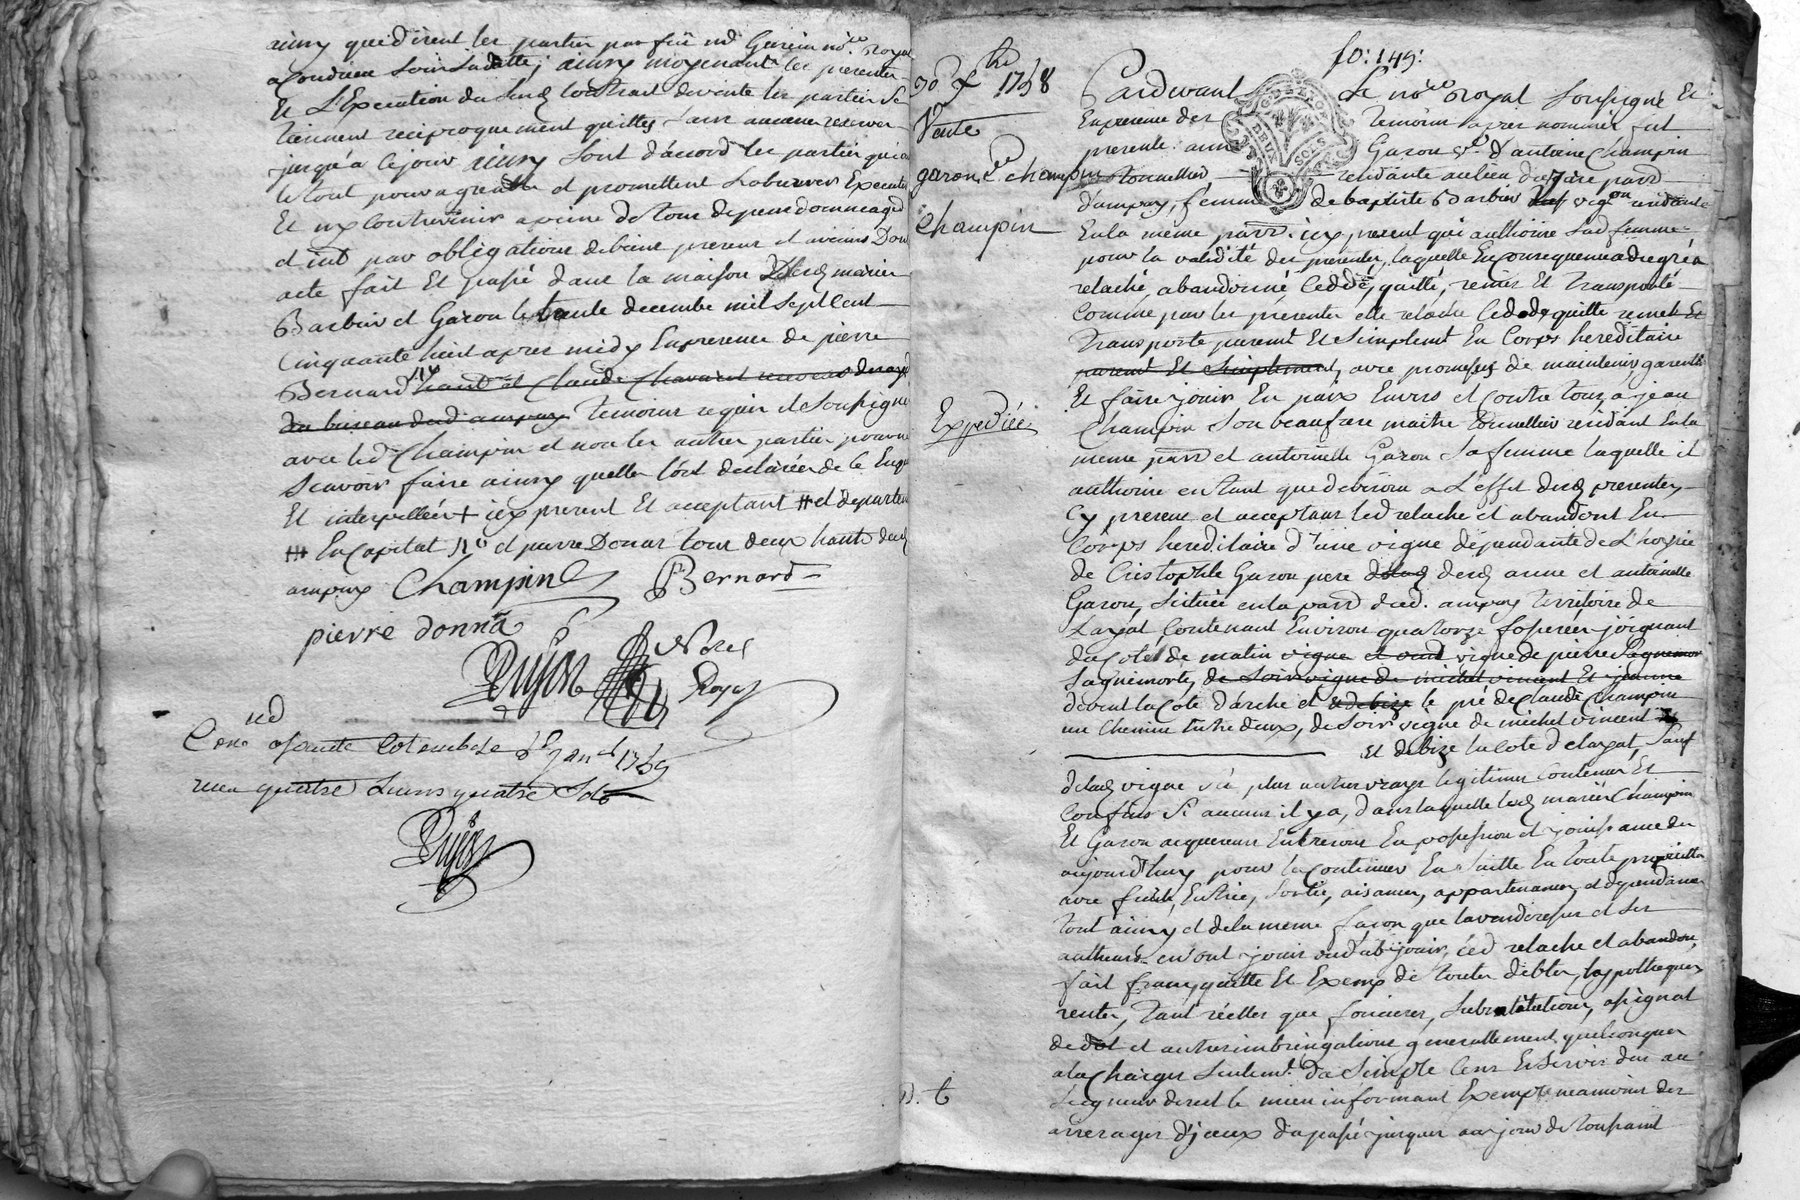 ainsy que dirent les parties par feu md Garein no.re Royal
a Condrieu Soin Sadette; ainsy moyenant les presentes
Et L'Execution dud contrat de vente les parties Se
tiennent reciproquement quittes sans aucune reserve
jusqu'a ce jour ainsy Sont d'accord les parties qui
le tout pour agreable et promettent Lobserver Executer
Et n'y Contrevenir a peine de tous depens dommages
et int par obligations de biens presens et avenirs Dont
acte fait Et passé dans la maison desd mariés
Barbier et Garon le trente decembre mil Sept Cent
Cinquante huit apres midy En presence de pierre
Bernard
du bureau dud ampuy temoins requis et Soussignés
avec led Champin et non les autres parties pour ne
Scavoir faire ainsy quelles l'ont declarées de ce Enquis
Et interpellées + icy present Et acceptant # et departem
En Capital et pierre Donat tous deux habts dud
ampuy Champin Bernard
pierre donna
Dujon Nore
Royal
Con.e a Sainte Colombe le 8e Janv 1759
receu quatre Livres quatre Sols
Dujon
fo: 149:
30 Xbre 1758
Vente
garon & champin
Champin
Expediée
Pardevant Le no.re Royal Soussigné Et
En presence des temoins apres nommés fut
presente anne Garon ve. d'antoine Champin
tonnellier residante au lieu de parr.
d'ampuy, femme de baptiste Barbier vig.on residante
En la même parr. icy present qui authorise Sad femme
pour la validité des presentes, laquelle En consequence a de gré a
relaché abandonné Ceddé, quitté, remis Et transporté
Comme par les presentes elle relache Cede quitte remet Et
transporte purem.t Et Simplem.t En Corps hereditaire
purem.t Et Simplement, avec promesses de maintenir, garentir
Et faire jouir En paix Envers et Contre tous a jean
Champin Son beaufrere maitre tonnellier residant En la
meme parr et antoinette Garon Sa femme laquelle il
authorise en tant que de besoin a L'effet desd presentes
Cy presens et acceptans led relache et abandon Est En
Corps hereditaire d'une vigne dependante de L'hoyrie
de Cristophle Garon pere desd anne et antoinette
Garon, Située en la parr dud. ampuy territoire de
Laxat Contenant Environ quatorze fosserées joignant
du Coté de matin vigne et vent vigne de pierre
Saquemorte, de Soir vigne de michel vincent Et
devent la Cote d'arche et de bize le pré de Claude Champin
un Chemin Entre deux, de Soir vigne de michel vincent
Et de bize la Cote de laxat, Sauf
desd vigne Sis, plus autres vrays legitimes Contenus Et
Confins Si aucuns il y a, dans laquelle lesd mariés Champin
Et Garon acquereurs Entreront En possession et jouissance des
aujourd'huy pour la Continuer En Suitte En toute proprietté
avec fruits, Entrées, Sorties, aisances, appartenances, et dependances
tout ainsy et de la meme façon que la venderesse et Ses
autheurs en ont jouis ou du jouir, Led relache et abandon
fait franc, quitte Et Exemp de toutes debtes, hypotheques
rentes, tant réelles que foncieres, Substitutions, assignat
de dot et autres imbringations generallement quelconques
a la Charge Seulem.t du Simple Cens Et Servis dus au
Seigneur direct le mieu informant Exempt neamoins des
arrerages d'yceux du passé jusques au jour de toussaint